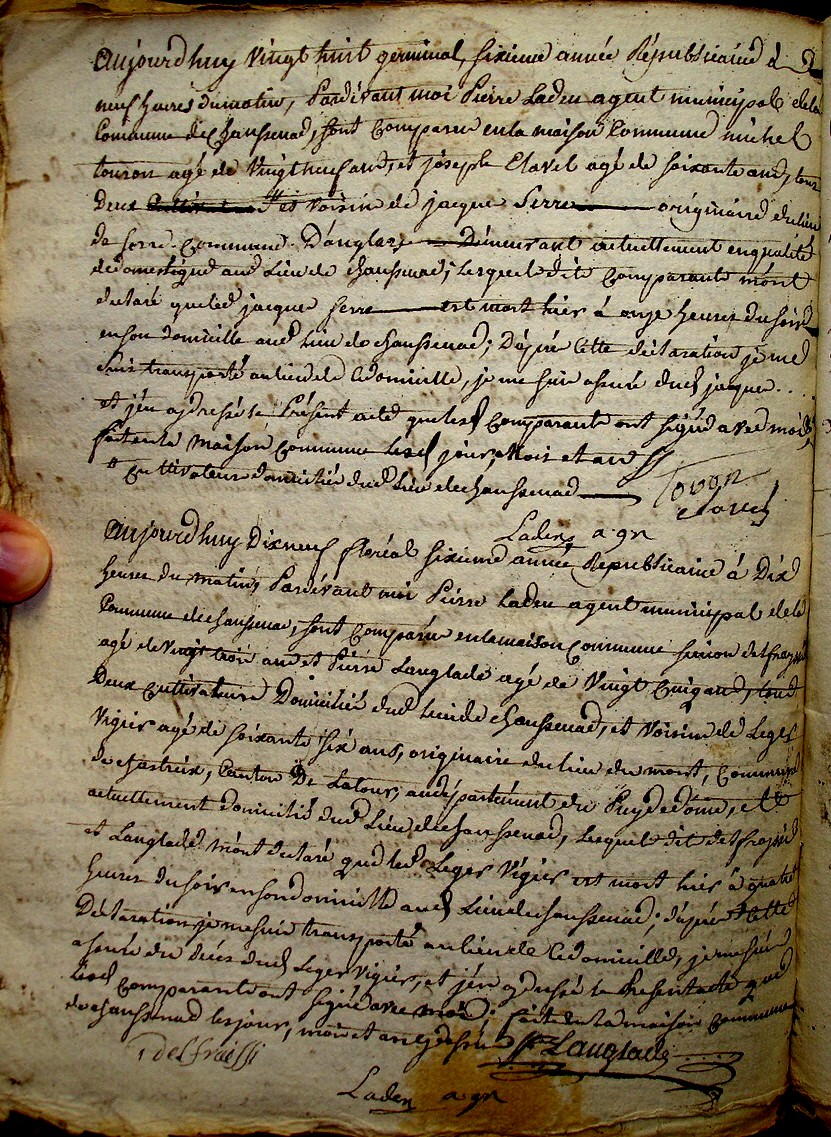 aujourd'huy vingt huit germinal, sixieme année Républicaine à
neuf heures du matin, Pardevant moi Pierre Laden agent municipal de la
Commune de chaussenac, sont comparu en la maison Commune michel
touron agé de vingt neuf ans, et joseph Clavel agé de soixante ans, tous
deux # et voisin de jacque Serre originaire du lieu
de Commune D'anglars Demeurant actuellement en qualité
de domestique aud Lieu de chaussenac; lesquels dits comparants m'ont
déclaré que led jacque serre est mort hier à onze heures du soir
en son domicille aud lieu de chaussenac; D'après cette déclaration je me
suis transporté au lieu de ce domicille, je me suis assuré dud jacque..
et j'en ay dressé le Présent acte que lesd comparants ont signé avec moi,
fait en la maison commune lesd jour, mois et an
# Cultivateurs domiciliés dud Lieu de chaussenac
Toron
clavel
Laden agn
aujourd'huy Dixneuf floréal sixieme année Republicaine à Dix
heures du matin, Pardevant moi Pierre Laden agent municipal de la
Commune de chaussenac, sont comparu en la maison Commune
agé de vingt trois ans et Pierre Langlade agé de vingt cinq ans, tous
Deux cultivateurs Domiciliés dud lieu de chaussenac, et voisin de Leger
Vigier agé de soixante six ans, originaire du lieu du mont, Commune
de chastreix, Canton De Latour, au département du Puy de dome, et
actuellement domicilié dud Lieu de chaussenac, lesquels dit
et Langlade m'ont déclaré que led Leger Vigier est mort hier à quatre
heures du soir en son domicille aud Lieu de chaussenac; d'après cette
Déclaration je me suis transporté au lieu de ce domicille, je me suis
assuré du décès dud Leger Vigier, et j'en ay dressé le Present acte que
lesd comparants ont signé avec moi; fait en la maison commune
de chaussenac les jour, mois et an
delfraissi
Pre Langlade
Laden agn